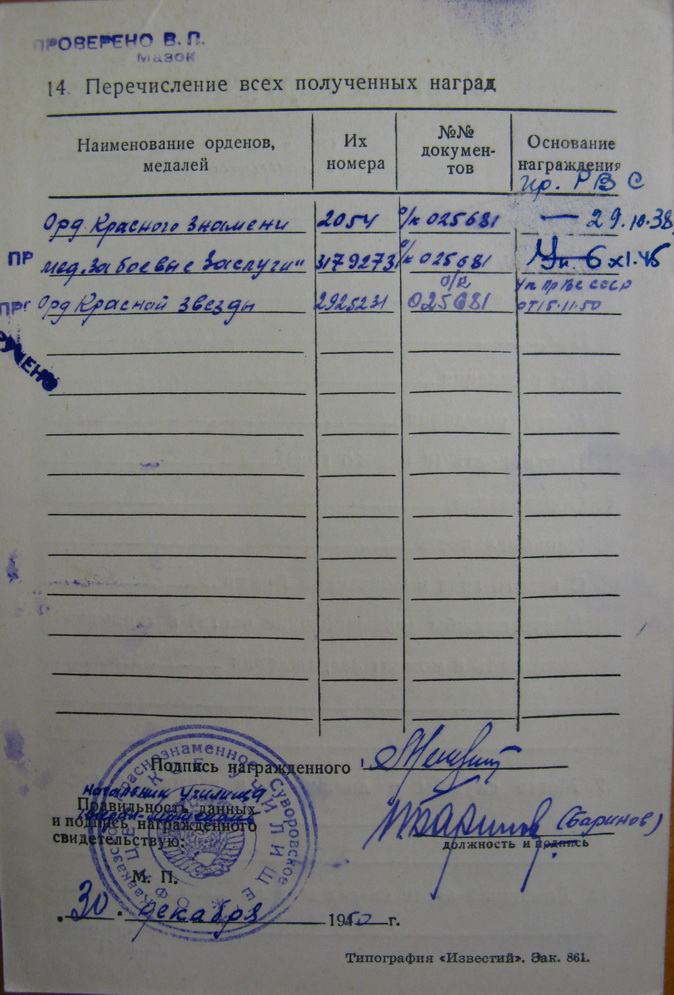 ПРОВЕРЕНО В. П.
Мазок
14. Перечисление всех полученных наград
Наименование орденов, медалей
Их номера
№№ документов
Основание награждения
пр. РВС
Орд. Красного Знамени 2054 о/к 025681 — 29.10.38
ПР
мед. „За боевые Заслуги" 3179273 о/к 025681 Ук 6 XI.45
ПРО
Орд Красной Звезды 2925231 о/к 025681 Ук Пр ВС СССР от 15.11.50
РУЧЕНО
Подпись награжденного
начальник училища
Правильность данных
и подпись награжденного
свидетельствую:
(Баринов)
должность и подпись
М. П.
Кавказское Краснознаменное Суворовское
ОФИЦЕРСКОЕ УЧИЛИЩЕ
30 декабря 1950 г.
Типография «Известий». Зак. 861.